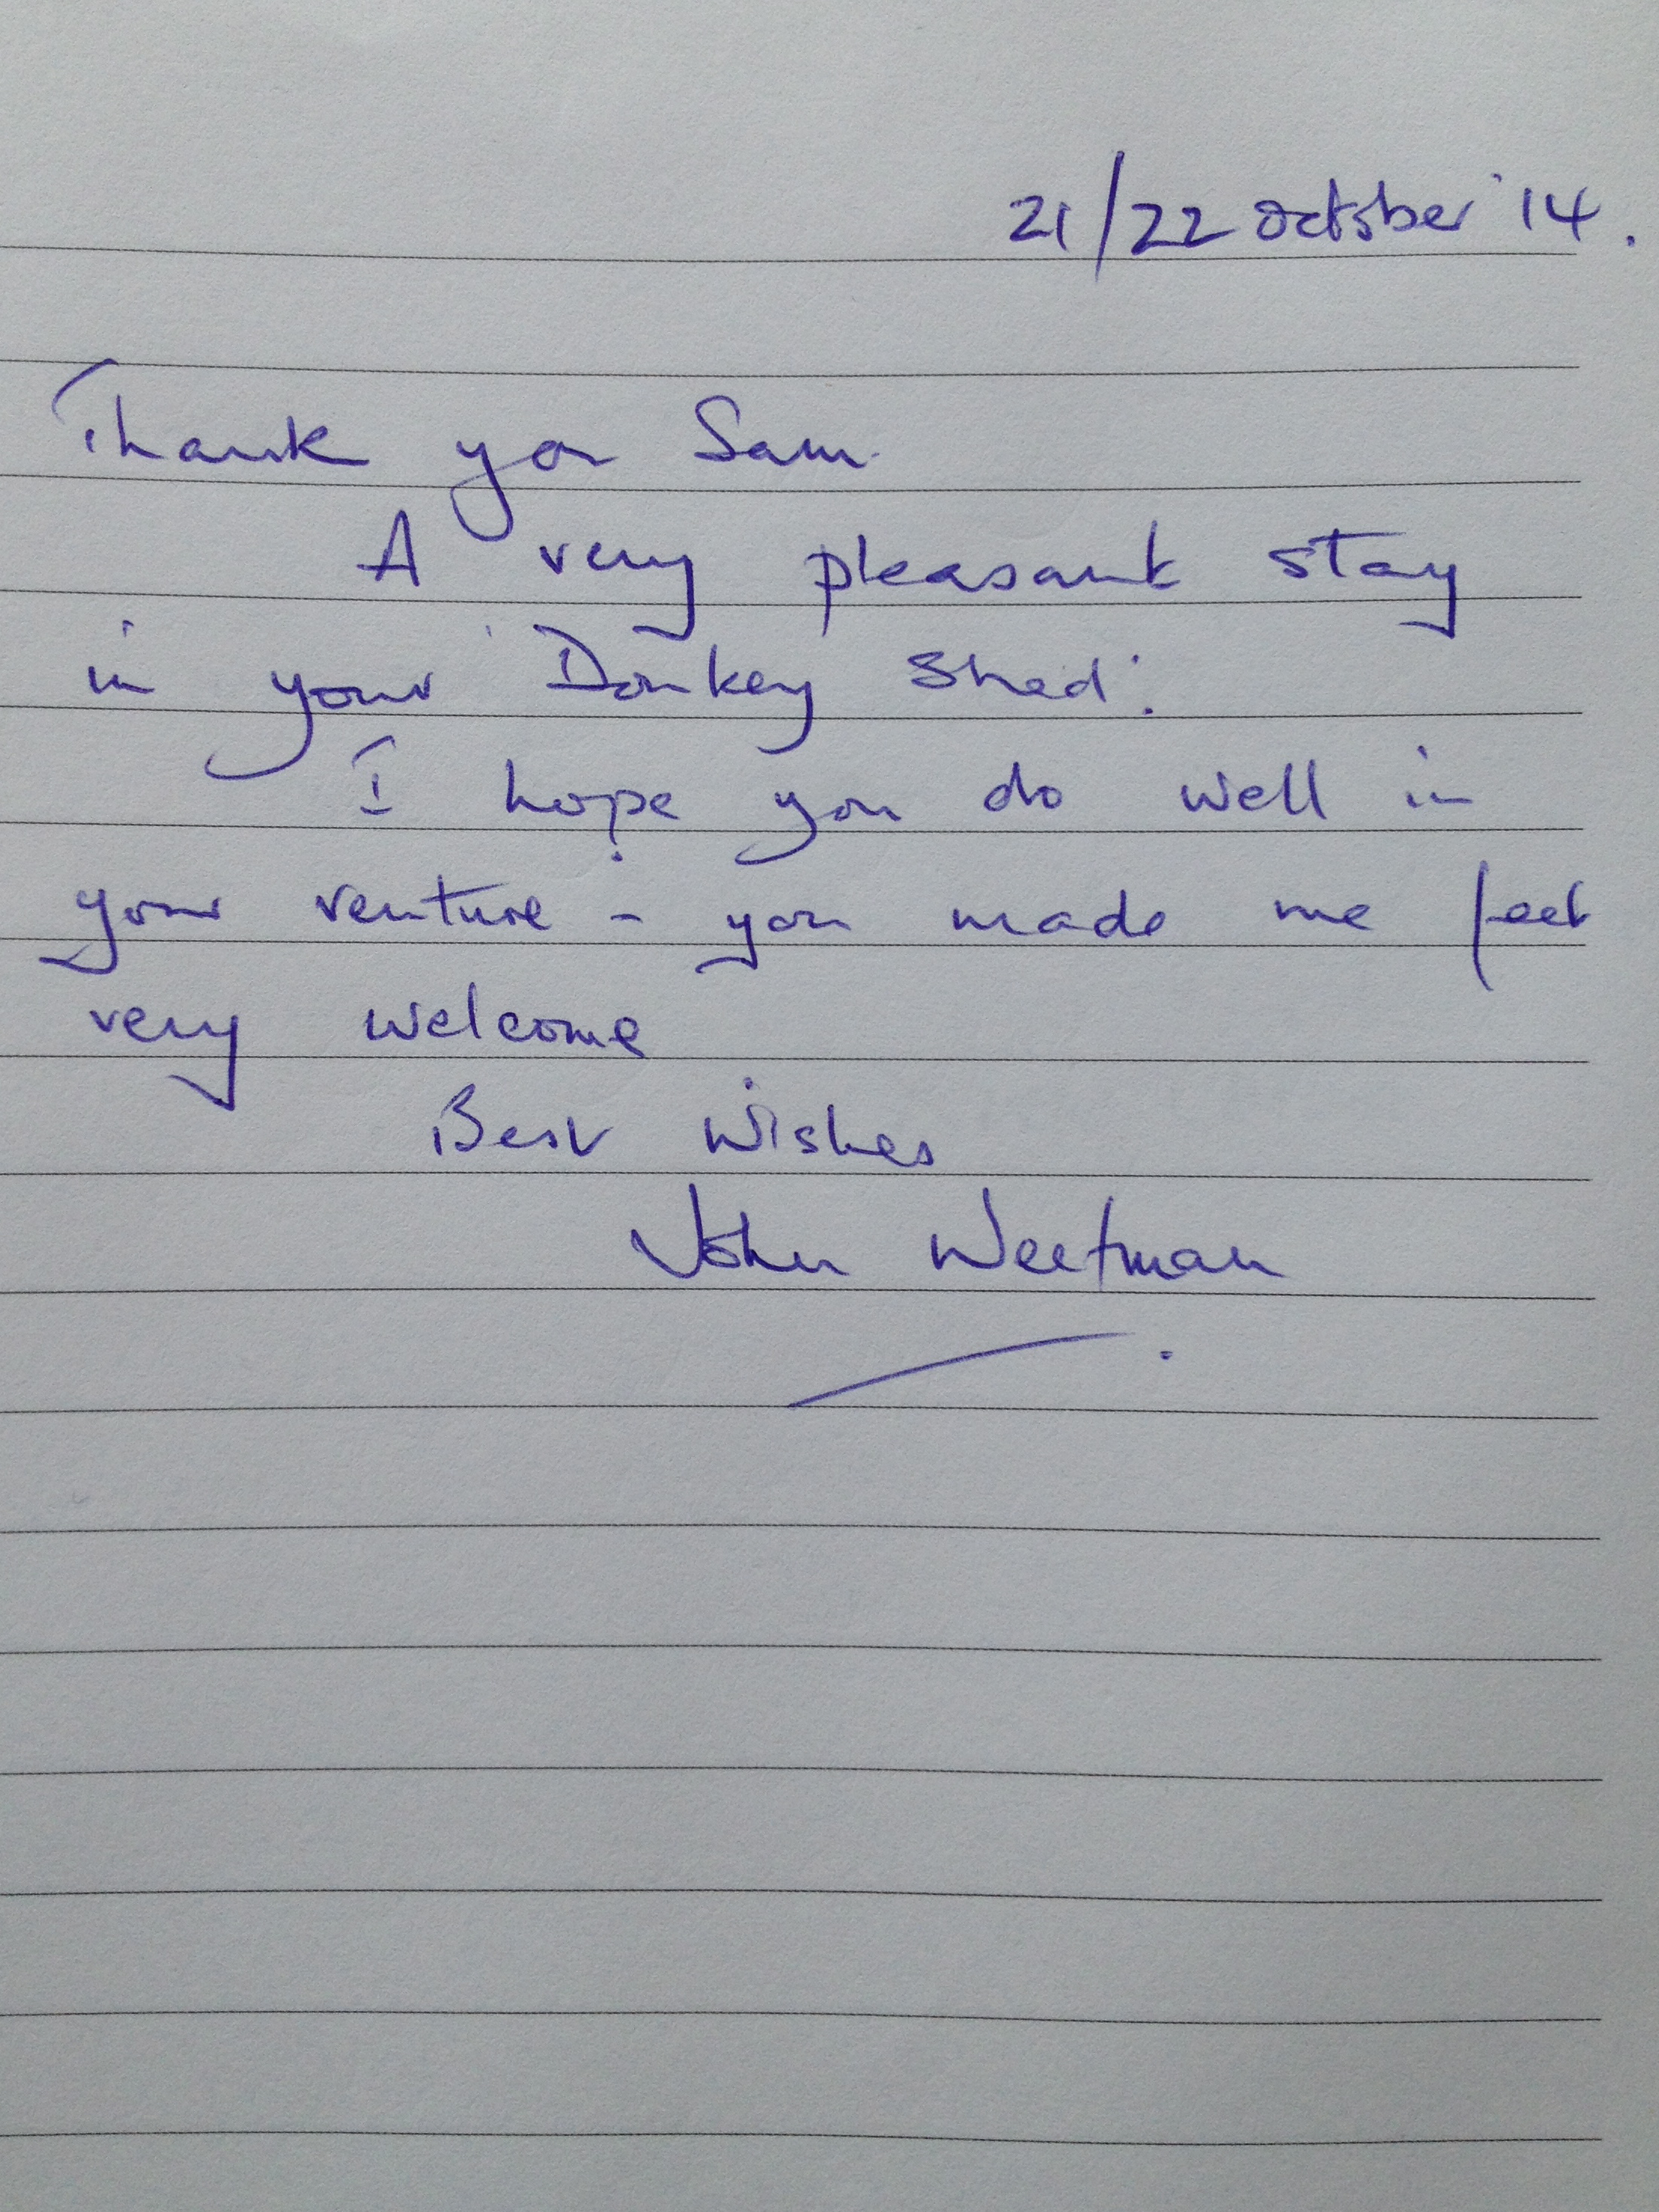 21/22 October '14.
Thank you Sam.
A very pleasant stay
in your 'Donkey Shed'.
I hope you do well in
your venture - you made me feel
very welcome
Best Wishes
John Weetman